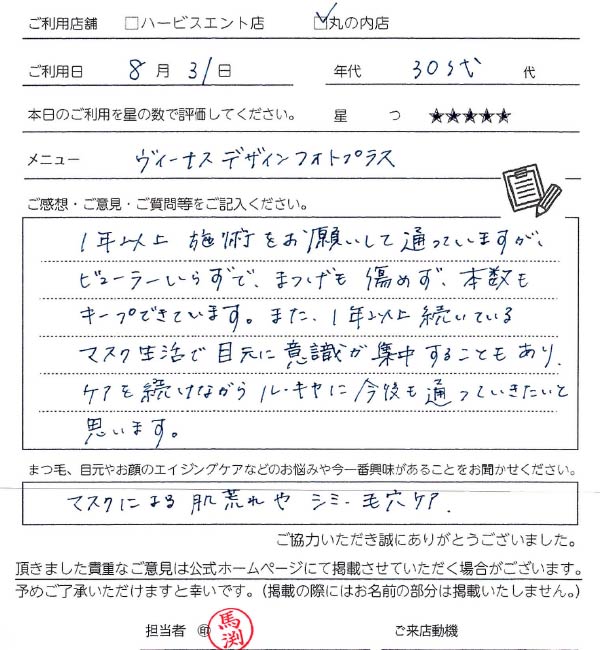 ご利用店舗 □ハービスエント店 ☑丸の内店
ご利用日 8月31日 年代 30代 代
本日のご利用を星の数で評価してください。 星 つ ★★★★★
メニュー ヴィーナスデザインフォトプラス
ご感想・ご意見・ご質問等をご記入ください。
1年以上 施術をお願いして通っていますが、
ビューラーいらずで、まつげも傷めず、本数も
キープできています。また、1年以上続いている
マスク生活で目元に意識が集中することもあり、
ケアを続けながらル・キヤに今後も通っていきたいと
思います。
まつ毛、目元やお顔のエイジングケアなどのお悩みや今一番興味があることをお聞かせください。
マスクによる肌荒れやシミ・毛穴ケア.
ご協力いただき誠にありがとうございました。
頂きました貴重なご意見は公式ホームページにて掲載させていただく場合がございます。
予めご了承いただけますと幸いです。（掲載の際にはお名前の部分は掲載いたしません。）
担当者 ㊞ 馬渕 ご来店動機